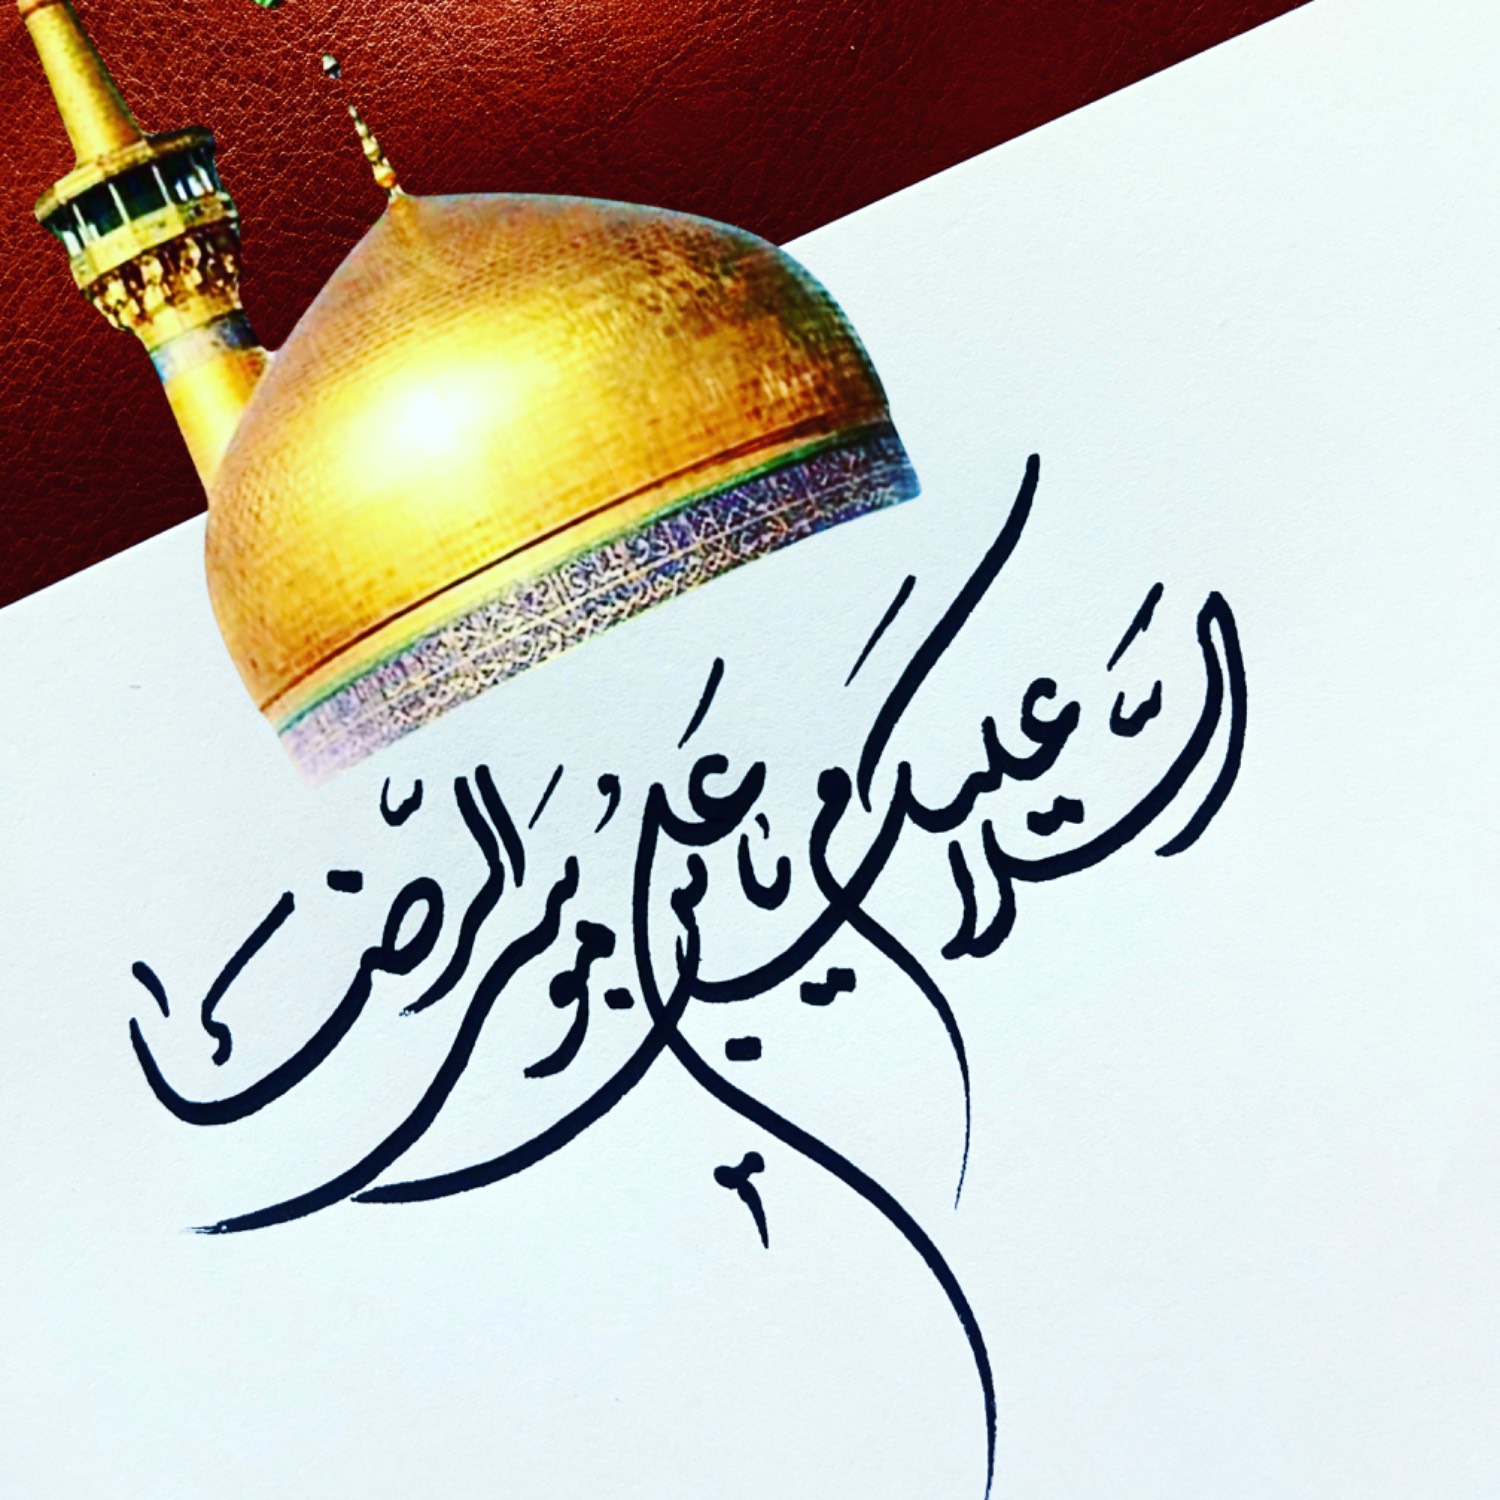 السَّلام علیکَ یا عَلی بن مُوسَی الرّضا